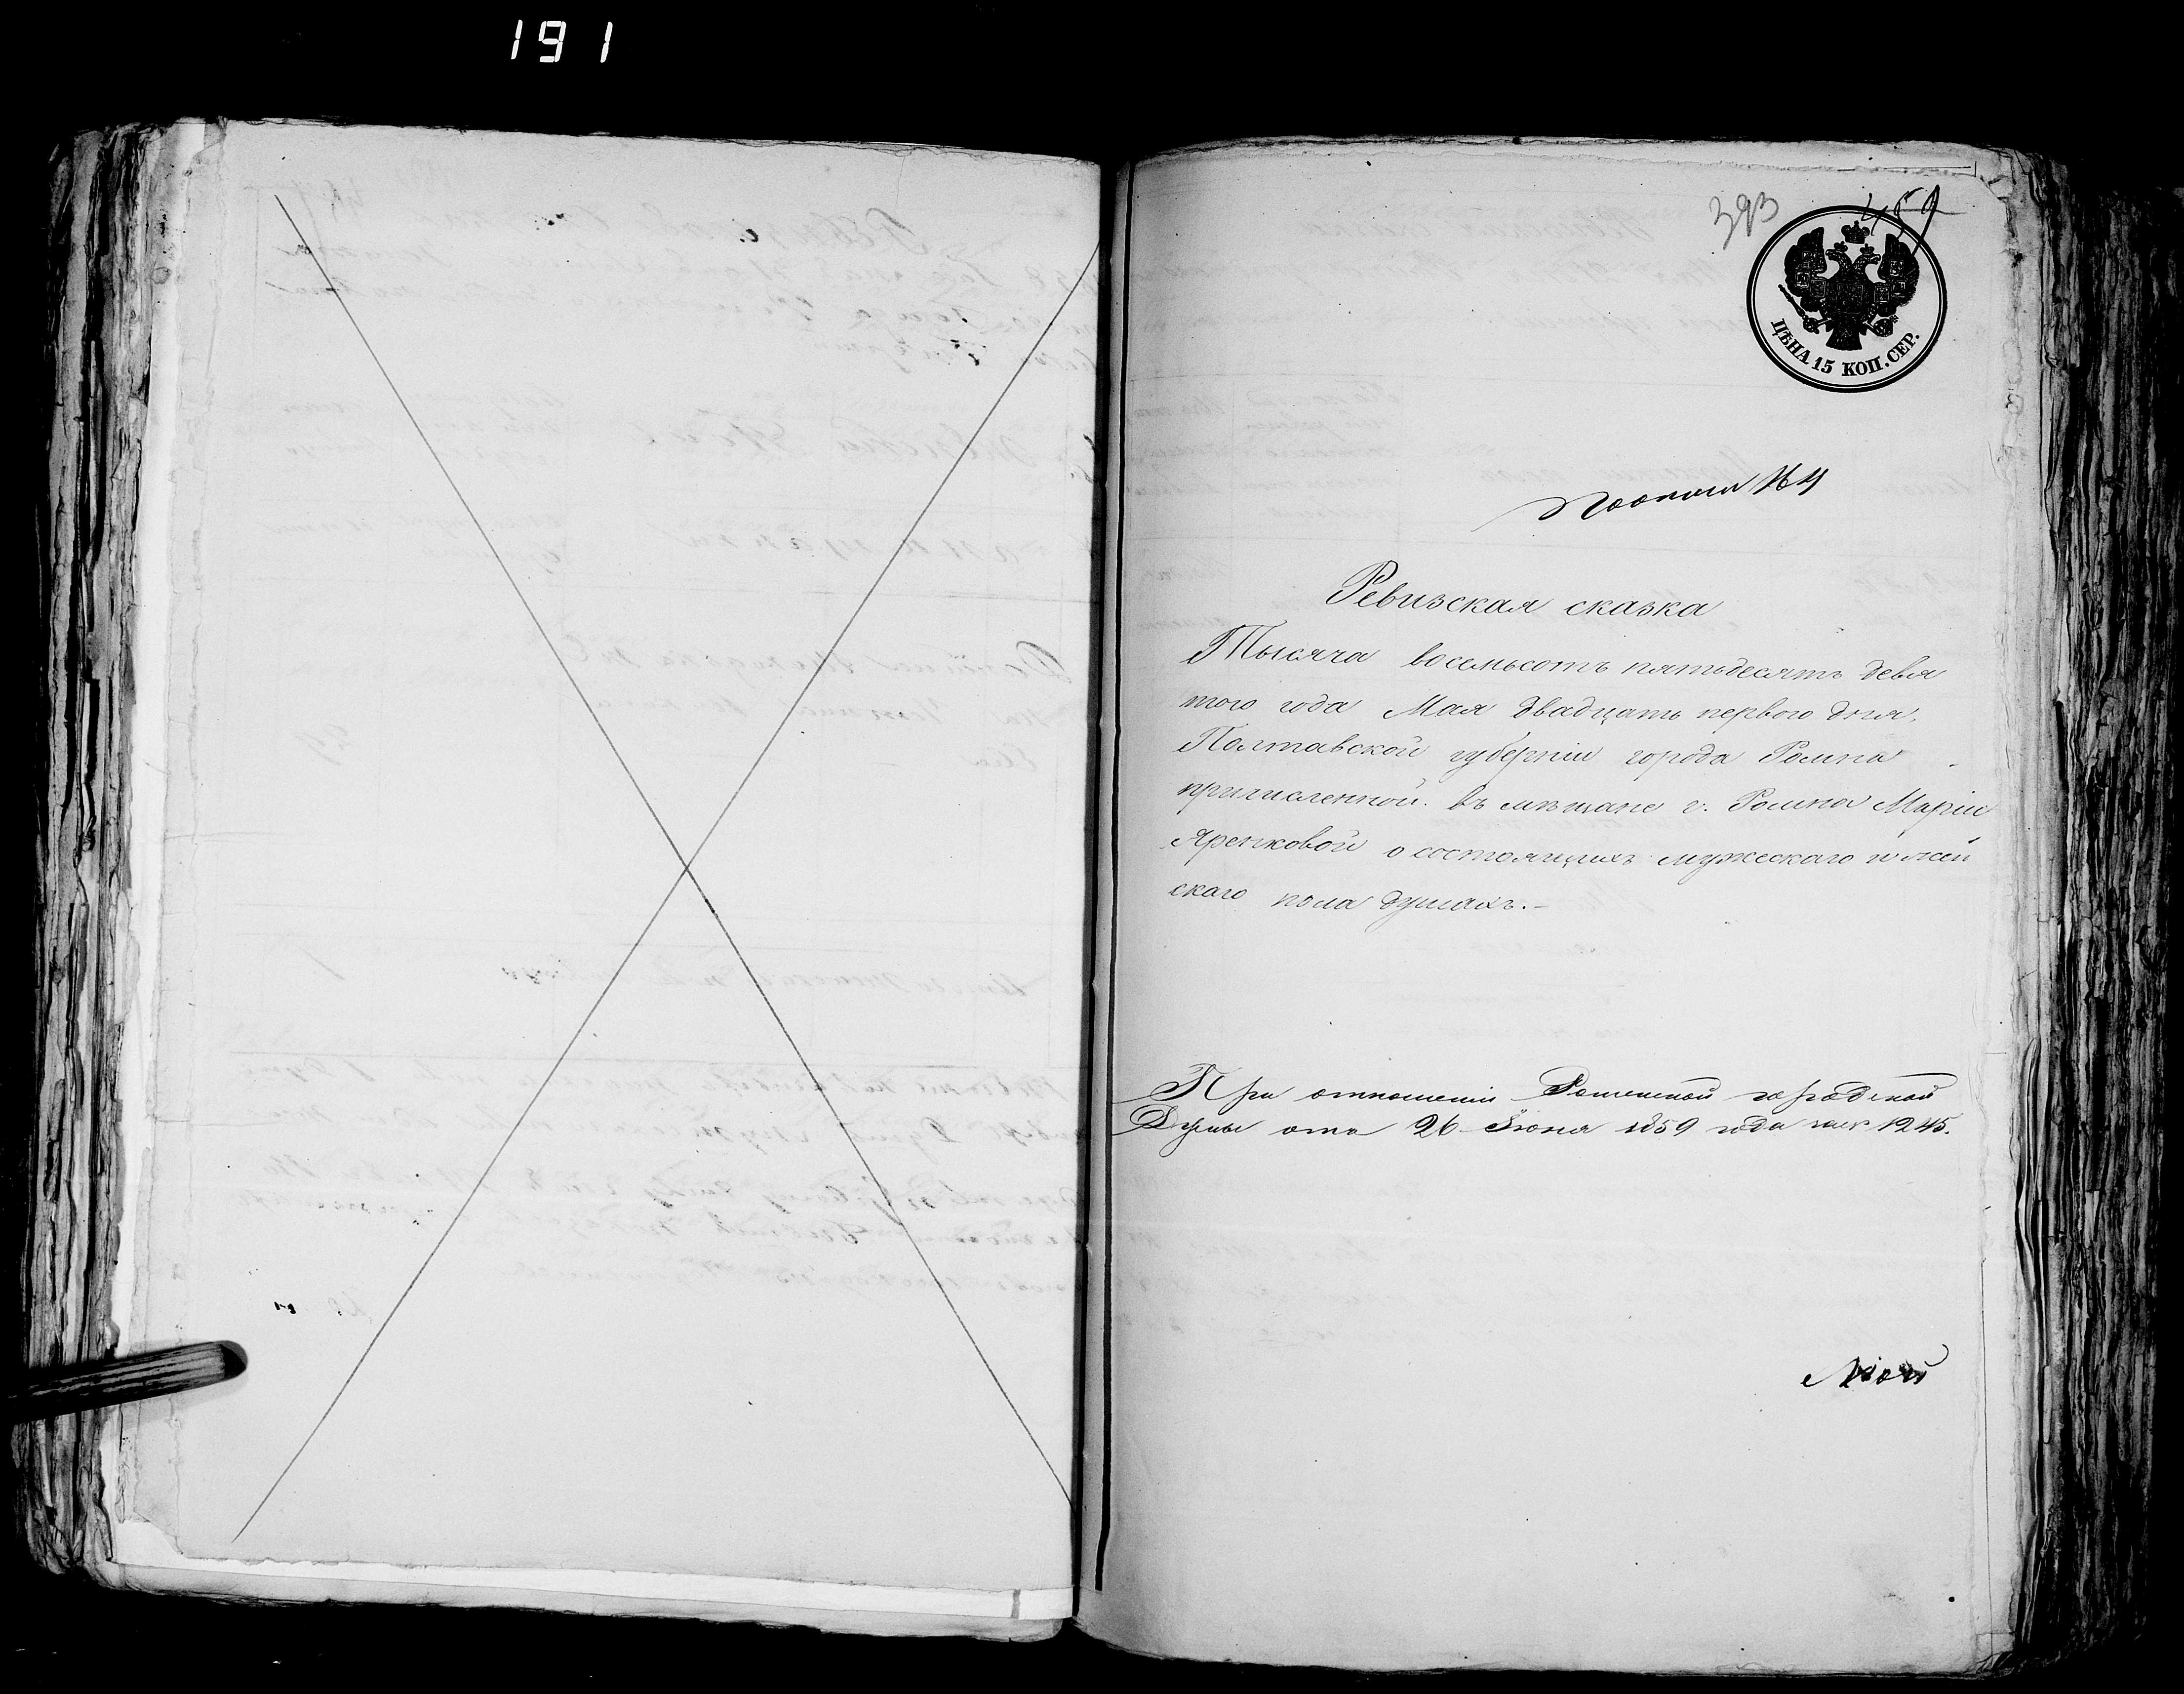 191
393
459
ЦѢНА 15 КОП. СЕР.
№ 4
Ревизская сказка
Тысяча восемьсотъ пятьдесятъ девя
того года Мая двадцать перваго дня.
Полтавской губерніи города Ромна
причисленной въ мѣщане г. Ромна Маріи
Яренковой о состоящихъ мужескаго и жен
скаго пола душахъ.-
При отношеніи Роменской городской
Думы отъ 26 Іюня 1859 года за № 1245.